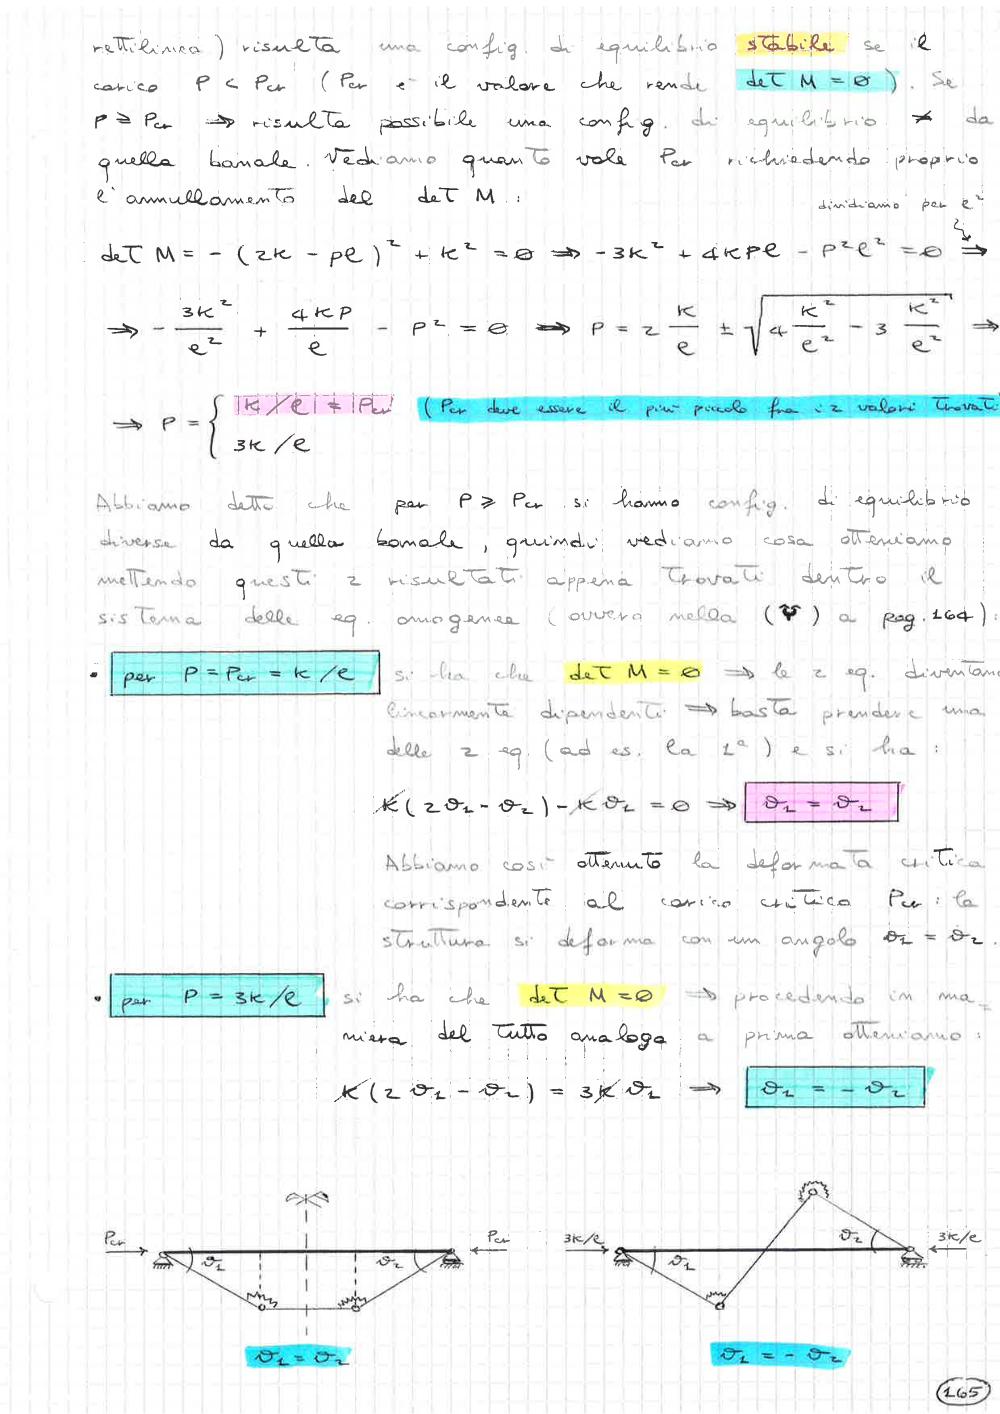 rettilinea) risulta una config. di equilibrio stabile se il
carico P < Pcr (Pcr è il valore che rende det M = 0). Se
P ≥ Pcr ⇒ risulta possibile una config. di equilibrio ≠ da
quella banale. Vediamo quanto vale Pcr richiedendo proprio
l'annullamento del det M:
dividiamo per ℓ²
det M = -(2k - pℓ)² + k² = 0 ⇒ -3k² + 4kpℓ - p²ℓ² = 0 ⇒
⇒ - 3k²/ℓ² + 4kp/ℓ - p² = 0 ⇒ P = 2 k/ℓ ± √(4 k²/ℓ² - 3 k²/ℓ²) ⇒
⇒ P = { |k/ℓ| = |Pcr| (Pcr deve essere il più piccolo fra i 2 valori trovati
3k/ℓ
Abbiamo detto che per P ≥ Pcr si hanno config. di equilibrio
diverse da quella banale, quindi vediamo cosa otteniamo
mettendo questi 2 risultati appena trovati dentro il
sistema delle eq. omogenee (ovvero nella (♈) a pag. 164):
• per P = Pcr = k/ℓ si ha che det M = 0 ⇒ le 2 eq. diventano
linearmente dipendenti ⇒ basta prendere una
delle 2 eq. (ad es. la 1ª) e si ha:
k(2ϑ1 - ϑ2) - kϑ1 = 0 ⇒ ϑ1 = ϑ2
Abbiamo così ottenuto la deformata critica
corrispondente al carico critico Pcr: la
struttura si deforma con un angolo ϑ1 = ϑ2.
• per P = 3k/ℓ si ha che det M = 0 ⇒ procedendo in ma-
niera del tutto analoga a prima otteniamo:
k(2ϑ1 - ϑ2) = 3kϑ1 ⇒ ϑ1 = -ϑ2
Pcr ϑ1 ϑ2 Pcr 3k/ℓ ϑ1 ϑ2 3k/ℓ
ϑ1 = ϑ2 ϑ1 = -ϑ2
165